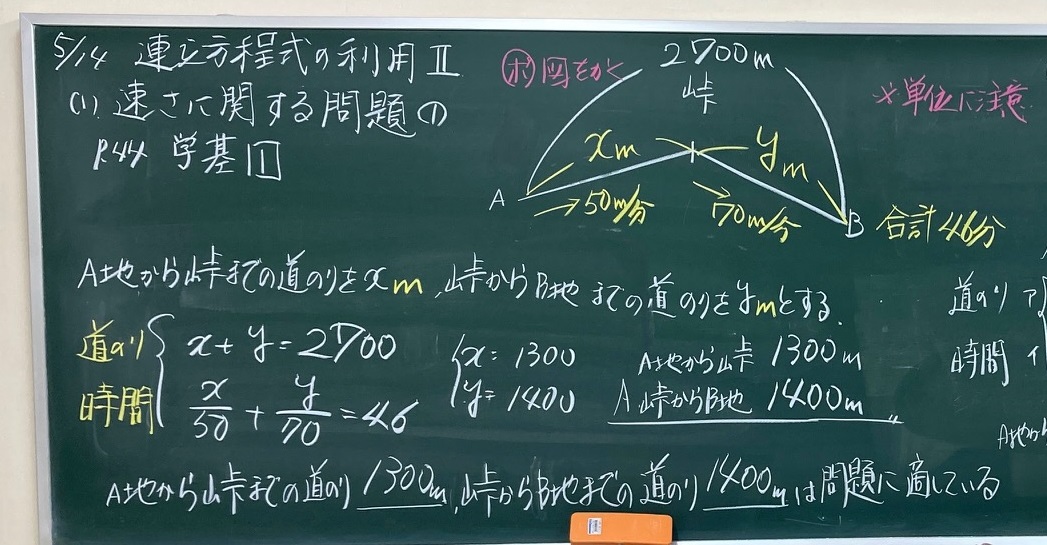 5/14 連立方程式の利用Ⅱ
(1) 速さに関する問題①
P.44 学基1
ポ 図をかく
2700m
峠
※単位に注意
xm
ym
A
→50m/分
→70m/分
B
合計46分
A地から峠までの道のりをxm、峠からB地までの道のりをymとする.
道のり x+y=2700
時間 x/50+y/70=46
x=1300
y=1400
A地から峠 1300m
A 峠からB地 1400m
道のり ア
時間 イ
A地から
A地から峠までの道のり1300m、峠からB地までの道のり1400mは問題に適している